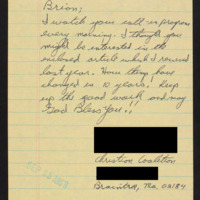 Brian;
I watch your call-in program
every morning. I thought you
might be interested in the
enclosed article which I received
last year. How they have
changed in 10 years; keep
up the good work and may
God Bless You!!
Christian Coalition
Braintree, Ma. 02184